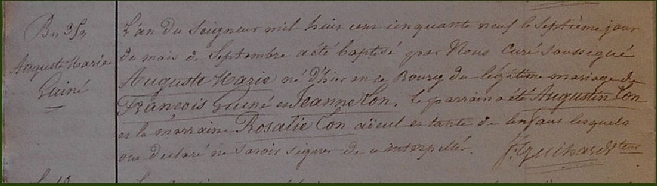 Bu 359
Auguste Marie
Guiné
L'an du Seigneur mil huit cent cinquante neuf le Septième jour
du mois de Septembre a été baptisé par Nous Curé soussigné
Auguste Marie né d'hier en ce Bourg du légitime mariage de
François Guiné et Jeanne Lon. le parrain a été Augustin Lon
et la marraine Rosalie Lon aïeul et tante de l'enfant lesquels
ont déclaré ne savoir signer de ce interpellés.
Guihard